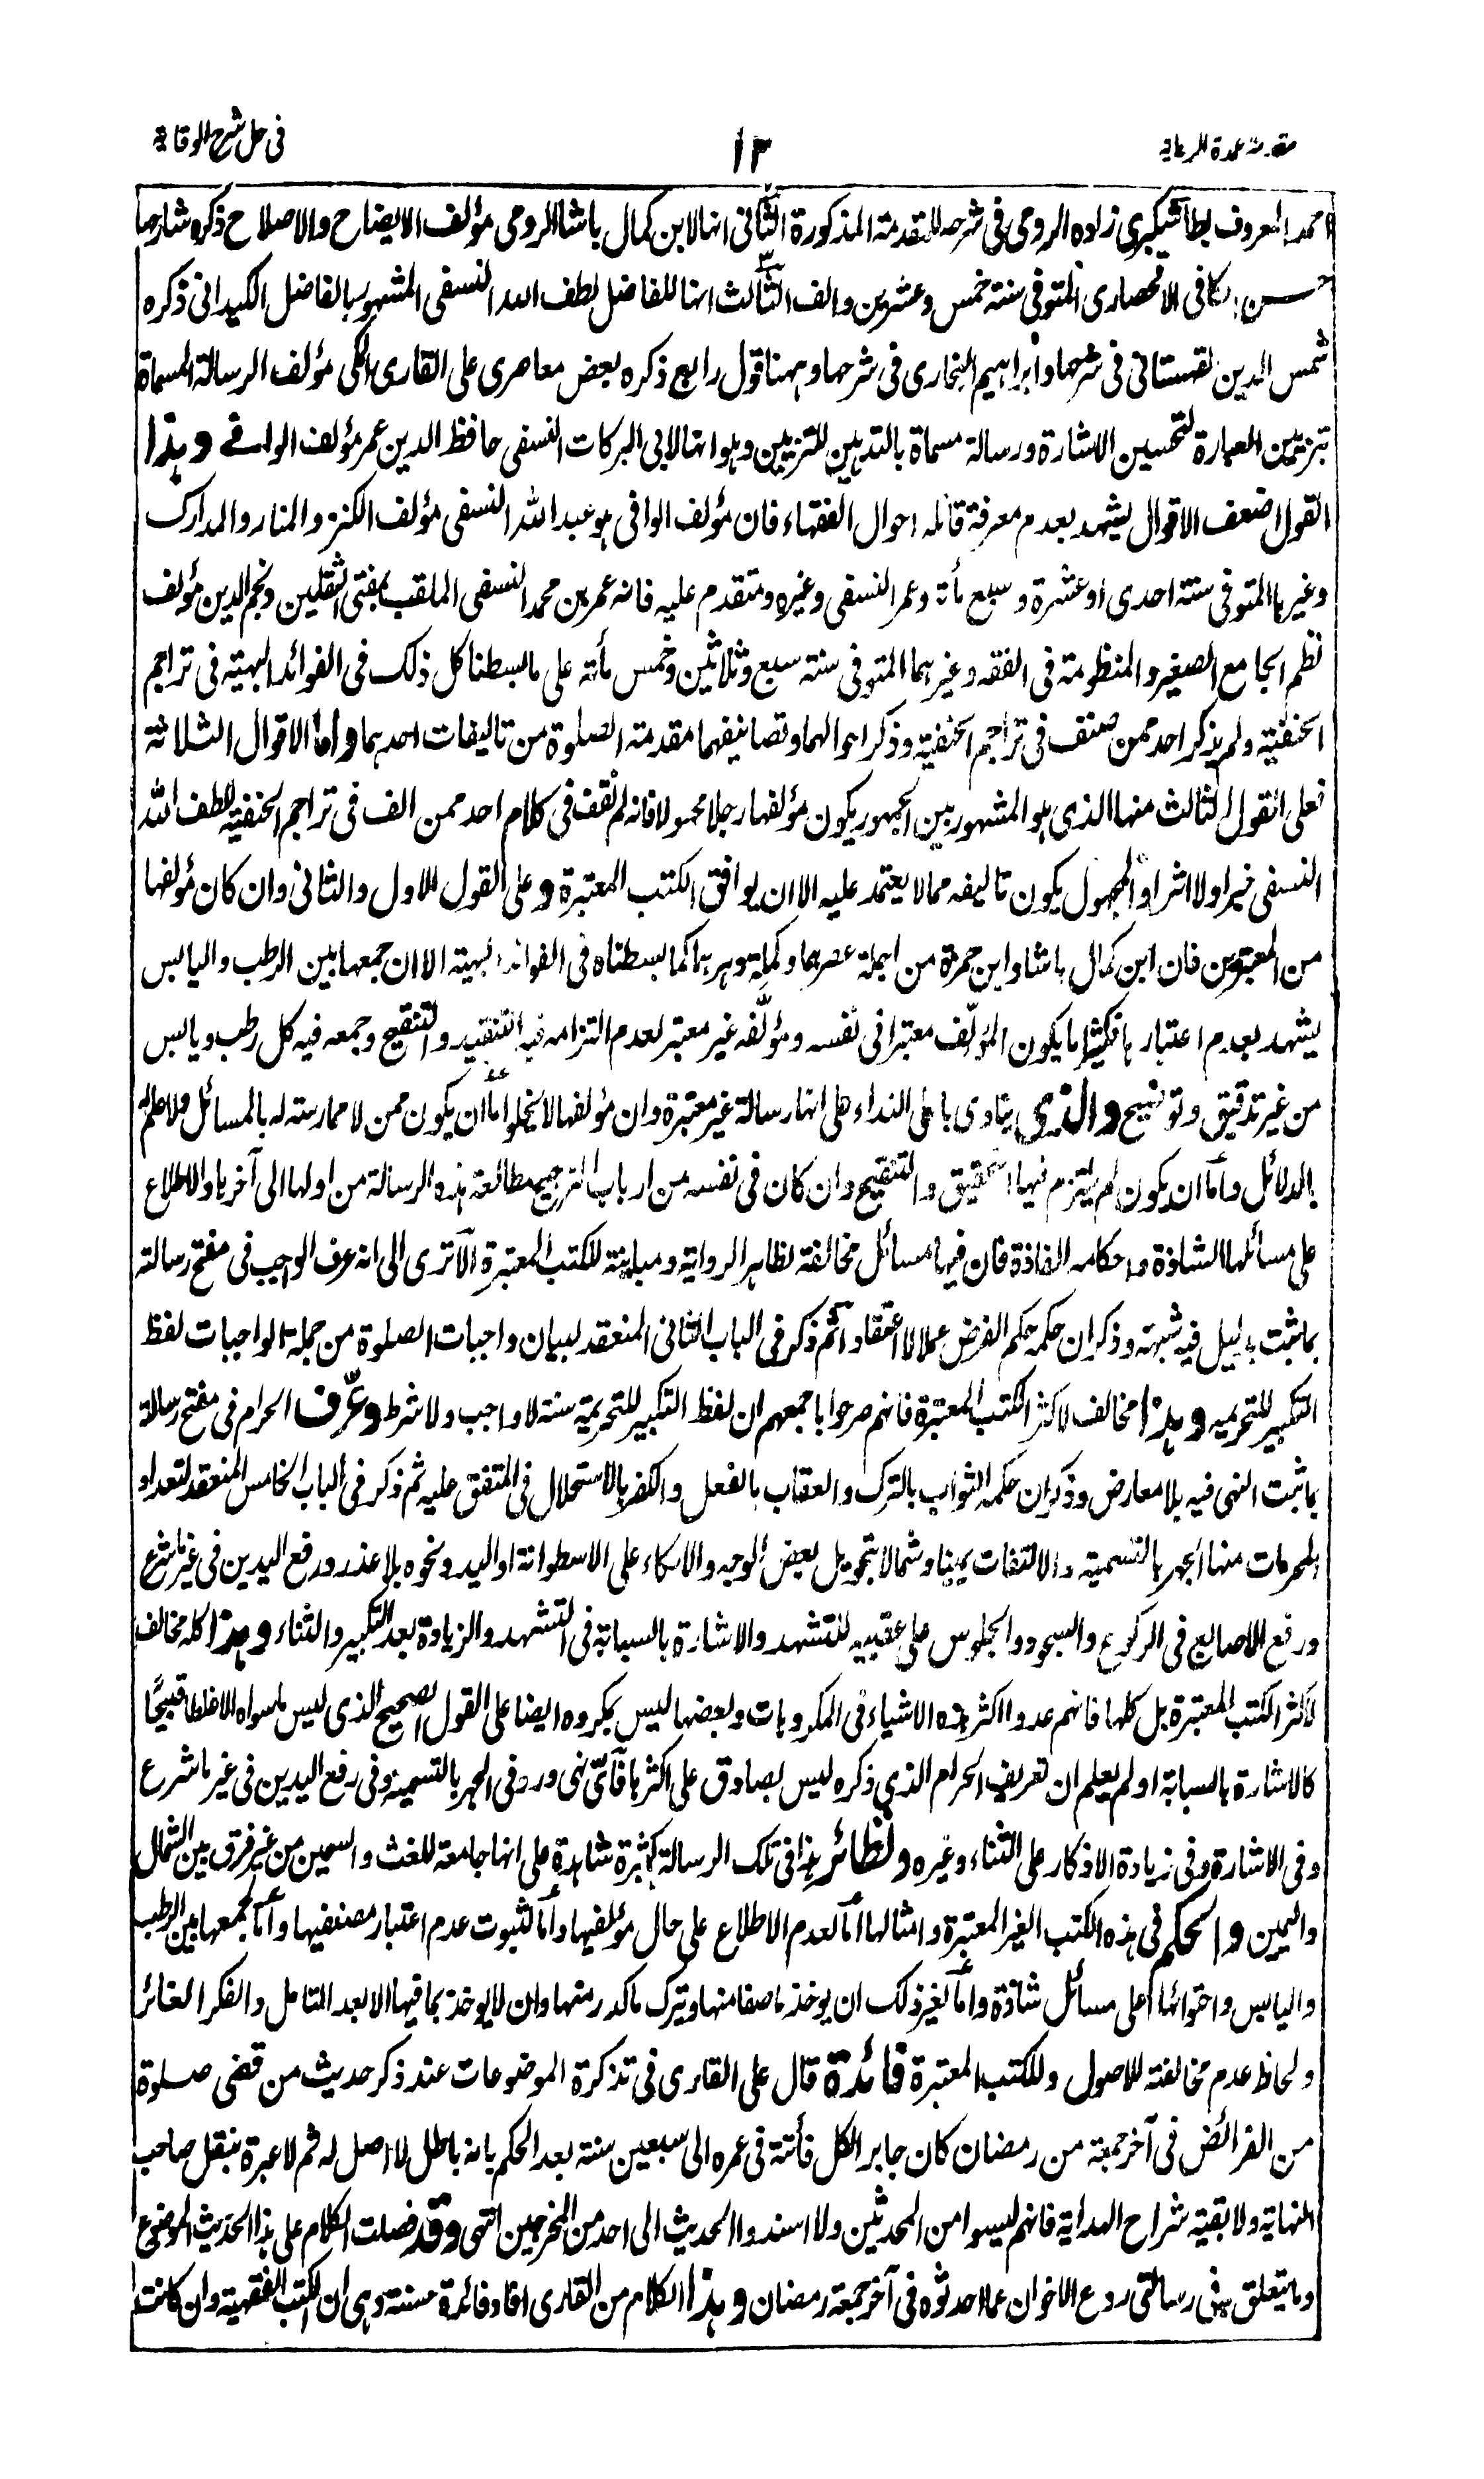 مقدمة عمدة الرعاية
١٣
فى حل شرح الوقاية
احمد المعروف بطاشكبرى زاده الرومى فى شرحه للمقدمة المذكورة الثانى انها لابن كمال باشا الرومى مؤلف الايضاح والاصلاح ذكره شارحها
حسن الكافى الاقحصارى المتوفى سنة خمس وعشرين والف الثالث انها للفاضل لطف الله النسفى المشهور بالفاضل الكيدانى ذكره
شمس الدين القهستانى فى شرحها وابراهيم البخارى فى شرحها وههنا قول رابع ذكره بعض معاصرى على القارى المكى مؤلف الرسالة المسماة
بتزيين العبارة لتحسين الاشارة ورسالة مسماة بالتدهين للتزيين وهو انها لابى البركات النسفى حافظ الدين عمر مؤلف الوافى وهذا
القول اضعف الاقوال يشهد بعدم معرفة قائله احوال الفقهاء فان مؤلف الوافى هو عبد الله النسفى مؤلف الكنز والمنار والمدارك
وغيرها المتوفى سنة احدى او عشرة وسبع مأة وعمر النسفى وغيره ومتقدم عليه فانه عمر بن محمد النسفى الملقب بمفتى الثقلين ونجم الدين مؤلف
نظم الجامع الصغير والمنظومة فى الفقه وغيرهما المتوفى سنة سبع وثلاثين وخمس مأة على ما بسطنا كل ذلك فى الفوائد البهية فى تراجم
الحنفية ولم يذكر احد ممن صنف فى تراجم الحنفية وذكر احوالهما وتصانيفهما مقدمة الصلوة من تاليفات احدهما واما الاقوال الثلاثة
فعلى القول الثالث منها الذى هو المشهور بين الجمهور يكون مؤلفها رجلا مجهولا فانه لم نقف فى كلام احد ممن الف فى تراجم الحنفية للطف الله
النسفى خبرا ولا اثرا والمجهول يكون تاليفه مما لا يعتمد عليه الا ان يوافق الكتب المعتبرة وعلى القول الاول والثانى وان كان مؤلفها
من المعتبرين فان ابن كمال باشا وابن حمزة من اجلة عصرهما وكملة دهرهما كما بسطناه فى الفوائد البهية الا ان جمعها بين الرطب واليابس
يشهد بعدم اعتبارها فكثيرا ما يكون المؤلِّف معتبرا فى نفسه ومؤلَّفه غير معتبر لعدم التزامه فيه التنقيد والتنقيح وجمعه فيه كل رطب ويابس
من غير تدقيق وتوضيح والذى ينادى باعلى النداء على انها رسالة غير معتبرة وان مؤلفها لا يخلوا اما ان يكون ممن لا ممارسته له بالمسائل ولا علم له
بالدلائل واما ان يكون لم يلتزم فيها التحقيق والتنقيح وان كان فى نفسه من ارباب الترجيح مطالعة هذه الرسالة من اولها الى آخرها والاطلاع
على مسائلها الشاذة واحكامه الفاذة فان فيها مسائل مخالفة لظاهر الرواية ومباينة للكتب المعتبرة الا ترى الى انه عرف الواجب فى مفتح رسالته
بما ثبت بدليل فيه شبهة وذكر ان حكمه حكم الفرض عملا لا اعتقادا ثم ذكر فى الباب الثانى المنعقد لبيان واجبات الصلوة من جملة الواجبات لفظ
التكبير للتحريمه وهذا مخالف لاكثر الكتب المعتبرة فانهم صرحوا باجمعهم ان لفظ التكبير للتحريمة سنة لا واجب ولا شرط وعرّف الحرام فى مفتح رسالة
بما ثبت النهى فيه بلا معارض وذكر ان حكمه الثواب بالترك والعقاب بالفعل والكفر بالاستحلال فى المتفق عليه ثم ذكر فى الباب الخامس المنعقد لتعداد
المحرمات منها الجهر بالتسمية والالتفات يمينا وشمالا بتحويل بعض الوجه والاتكاء على الاسطوانة او اليد ونحوه بلا عذر ورفع اليدين فى غير ما شرع
ورفع الاصابع فى الركوع والسجود والجلوس على عقبيه للتشهد والاشارة بالسبابة فى التشهد والزيادة بعد التكبير والثناء وهذا كله مخالف
لاكثر الكتب المعتبرة بل كلها فانهم عدوا اكثر هذه الاشياء فى المكروهات وبعضها ليس بمكروه ايضا على القول الصحيح الذى ليس ما سواه الا غلطا قبيحًا
كالاشارة بالسبابة اولم يعلم ان تعريف الحرام الذى ذكره ليس بصادق على اكثرها فاىّ نهى ورد فى الجهر بالتسمية وفى رفع اليدين فى غير ما شرع
وفى الاشارة وفى زيادة الاذكار على الثناء وغيره ونظائر هذا فى تلك الرسالة كثيرة شاهدة على انها جامعة للغث والسمين من غير فرق بين الشمال
واليمين والحكم فى هذه الكتب الغير المعتبرة وامثالها اما لعدم الاطلاع على حال مؤلفيها واما لثبوت عدم اعتبار مصنفيها واما لجمعها بين الرطب
واليابس واحتوائها على مسائل شاذة واما لغير ذلك ان يوخذ ما صفا منها ويترك ما كدر منها وان لا يوخذ بما فيها الا بعد التامل والفكر الغائر
ولحاظ عدم مخالفته للاصول وللكتب المعتبرة فائدة قال على القارى فى تذكرة الموضوعات عند ذكر حديث من قضى صلوة
من الفرائض فى آخر جمعة من رمضان كان جابر الكل فأتته فى عمره الى سبعين سنة بعد الحكم بانه باطل لا اصل له ثم لا عبرة بنقل صاحب
النهاية ولا بقية شراح الهداية فانهم ليسوا من المحدثين ولا اسندوا الحديث الى احد من المخرجين انتهى وقد فصلت الكلام على هذا الحديث الموضوع
وما يتعلق به فى رسالتى ردع الاخوان عما احدثوه فى آخر جمعة رمضان وهذا الكلام من القارى افاد فائدة حسنة وهى ان الكتب الفقهية وان كانت